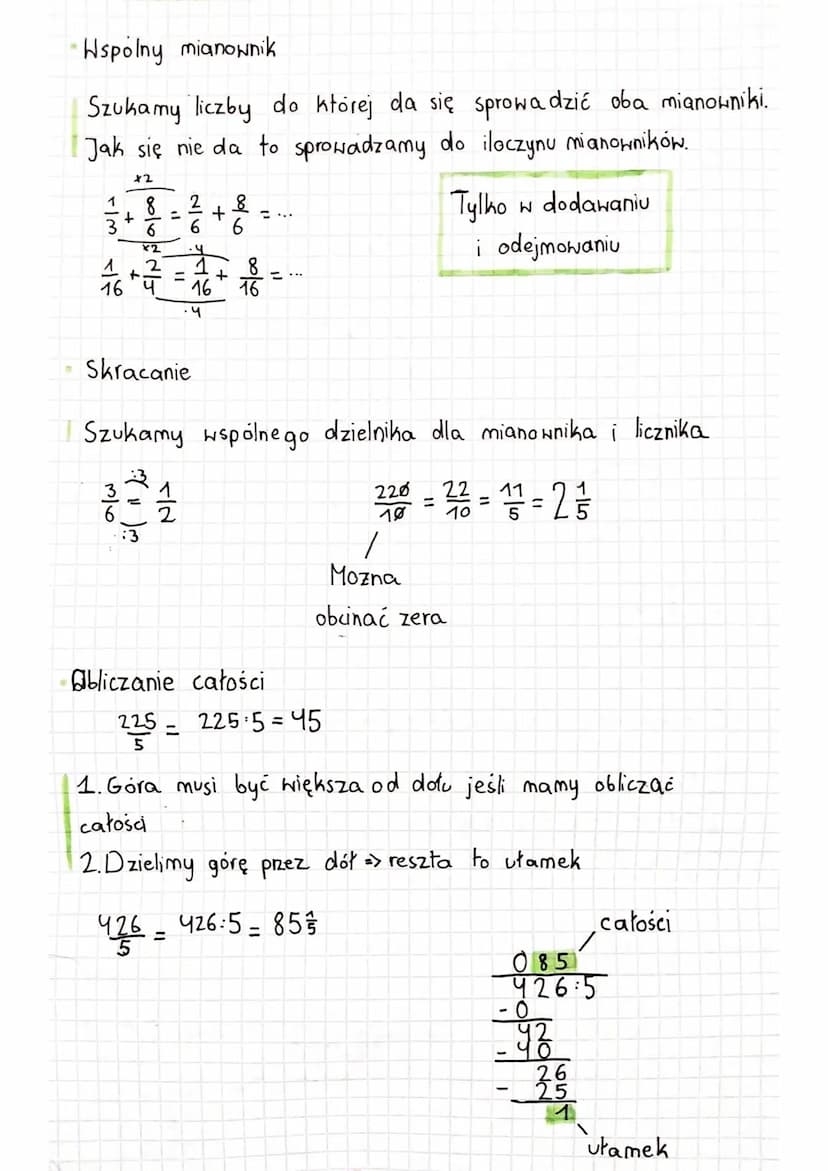 Wspólny mianownik
Szukamy liczby do której da się sprowadzić oba mianowniki.
Jak się nie da to sprowadzamy do iloczynu mianowników.
×2
1/3 + 8/6 = 2/6 + 8/6 = ...
×2
·4
1/16 + 2/4 = 1/16 + 8/16 = ...
·4
Tylko w dodawaniu
i odejmowaniu
Skracanie
Szukamy wspólnego dzielnika dla mianownika i licznika
:3
3/6 = 1/2
:3
220/10 = 22/10 = 11/5 = 2 1/5
Mozna
obcinać zera
Obliczanie całości
225/5 = 225:5 = 45
1. Góra musi być większa od dołu jeśli mamy obliczać
całości
2. Dzielimy górę przez dół => reszta to ułamek
426/5 = 426:5 = 85 1/5
całości
085
426:5
- 0
42
- 40
26
- 25
1
ułamek